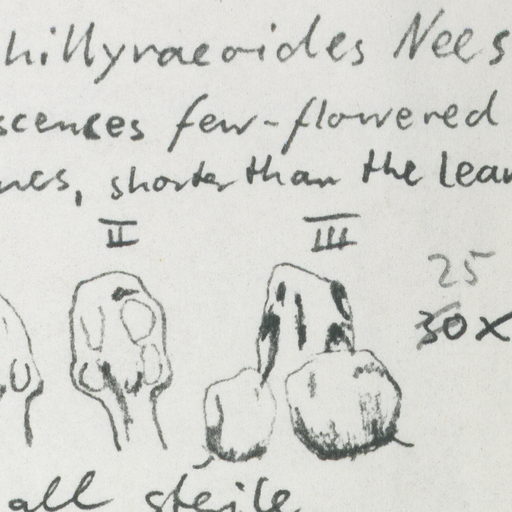 hillyraeoides Nees
scences few-flowered
nes, shorter than the leav
II III
25
30x
all steile